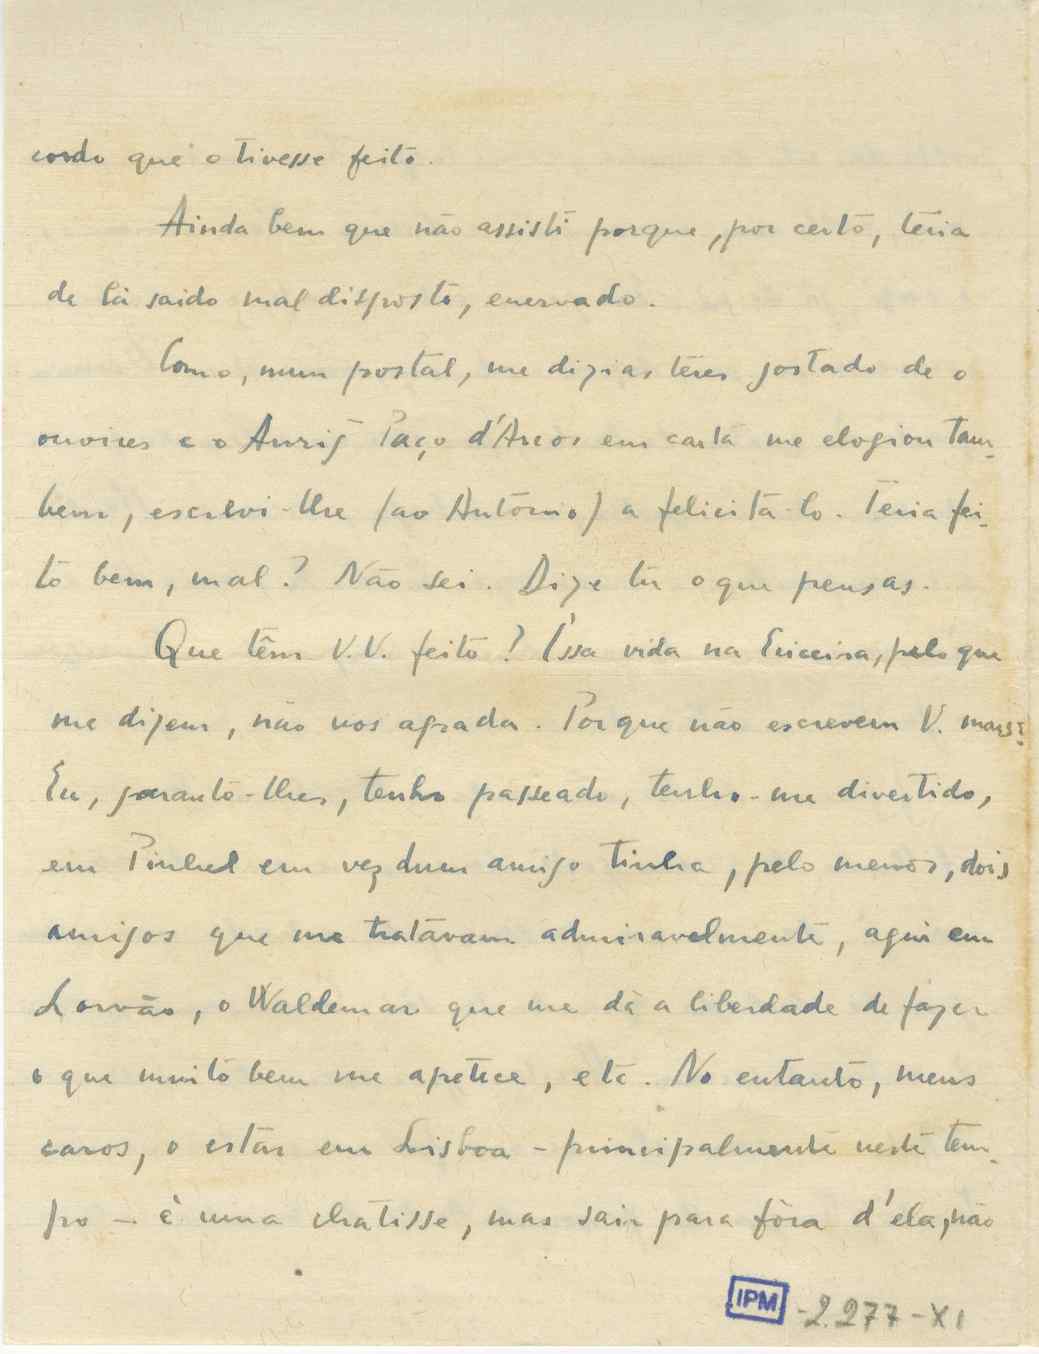 cordo que o tivesse feito.
Ainda bem que não assisti porque, por certo, teria
de lá saido mal disposto, enervado.
Como, num postal, me dizias teres gostado de o
ouvires e o Paço d'Arcos em carta me elogiou tam-
bem, escrevi-lhe (ao António) a felicitá-lo. Teria fei-
to bem, mal? Não sei. Dize tu o que pensas.
Que têm V.V. feito? Essa vida na Ericeira, pelo que
me dizem, não vos agrada. Porque não escrevem V. mais?
Eu, garanto-lhes, tenho passeado, tenho-me divertido,
em Pinhel em vez dum amigo tinha, pelo menos, dois
amigos que me tratavam admiravelmente, aqui em
Lorvão, o Waldemar que me dá a liberdade de fazer
o que muito bem me apetece, etc. No entanto, meus
caros, o estar em Lisboa - principalmente neste tem-
po - é uma chatisse, mas sair para fóra d'ela, não
IPM -2.277-XI